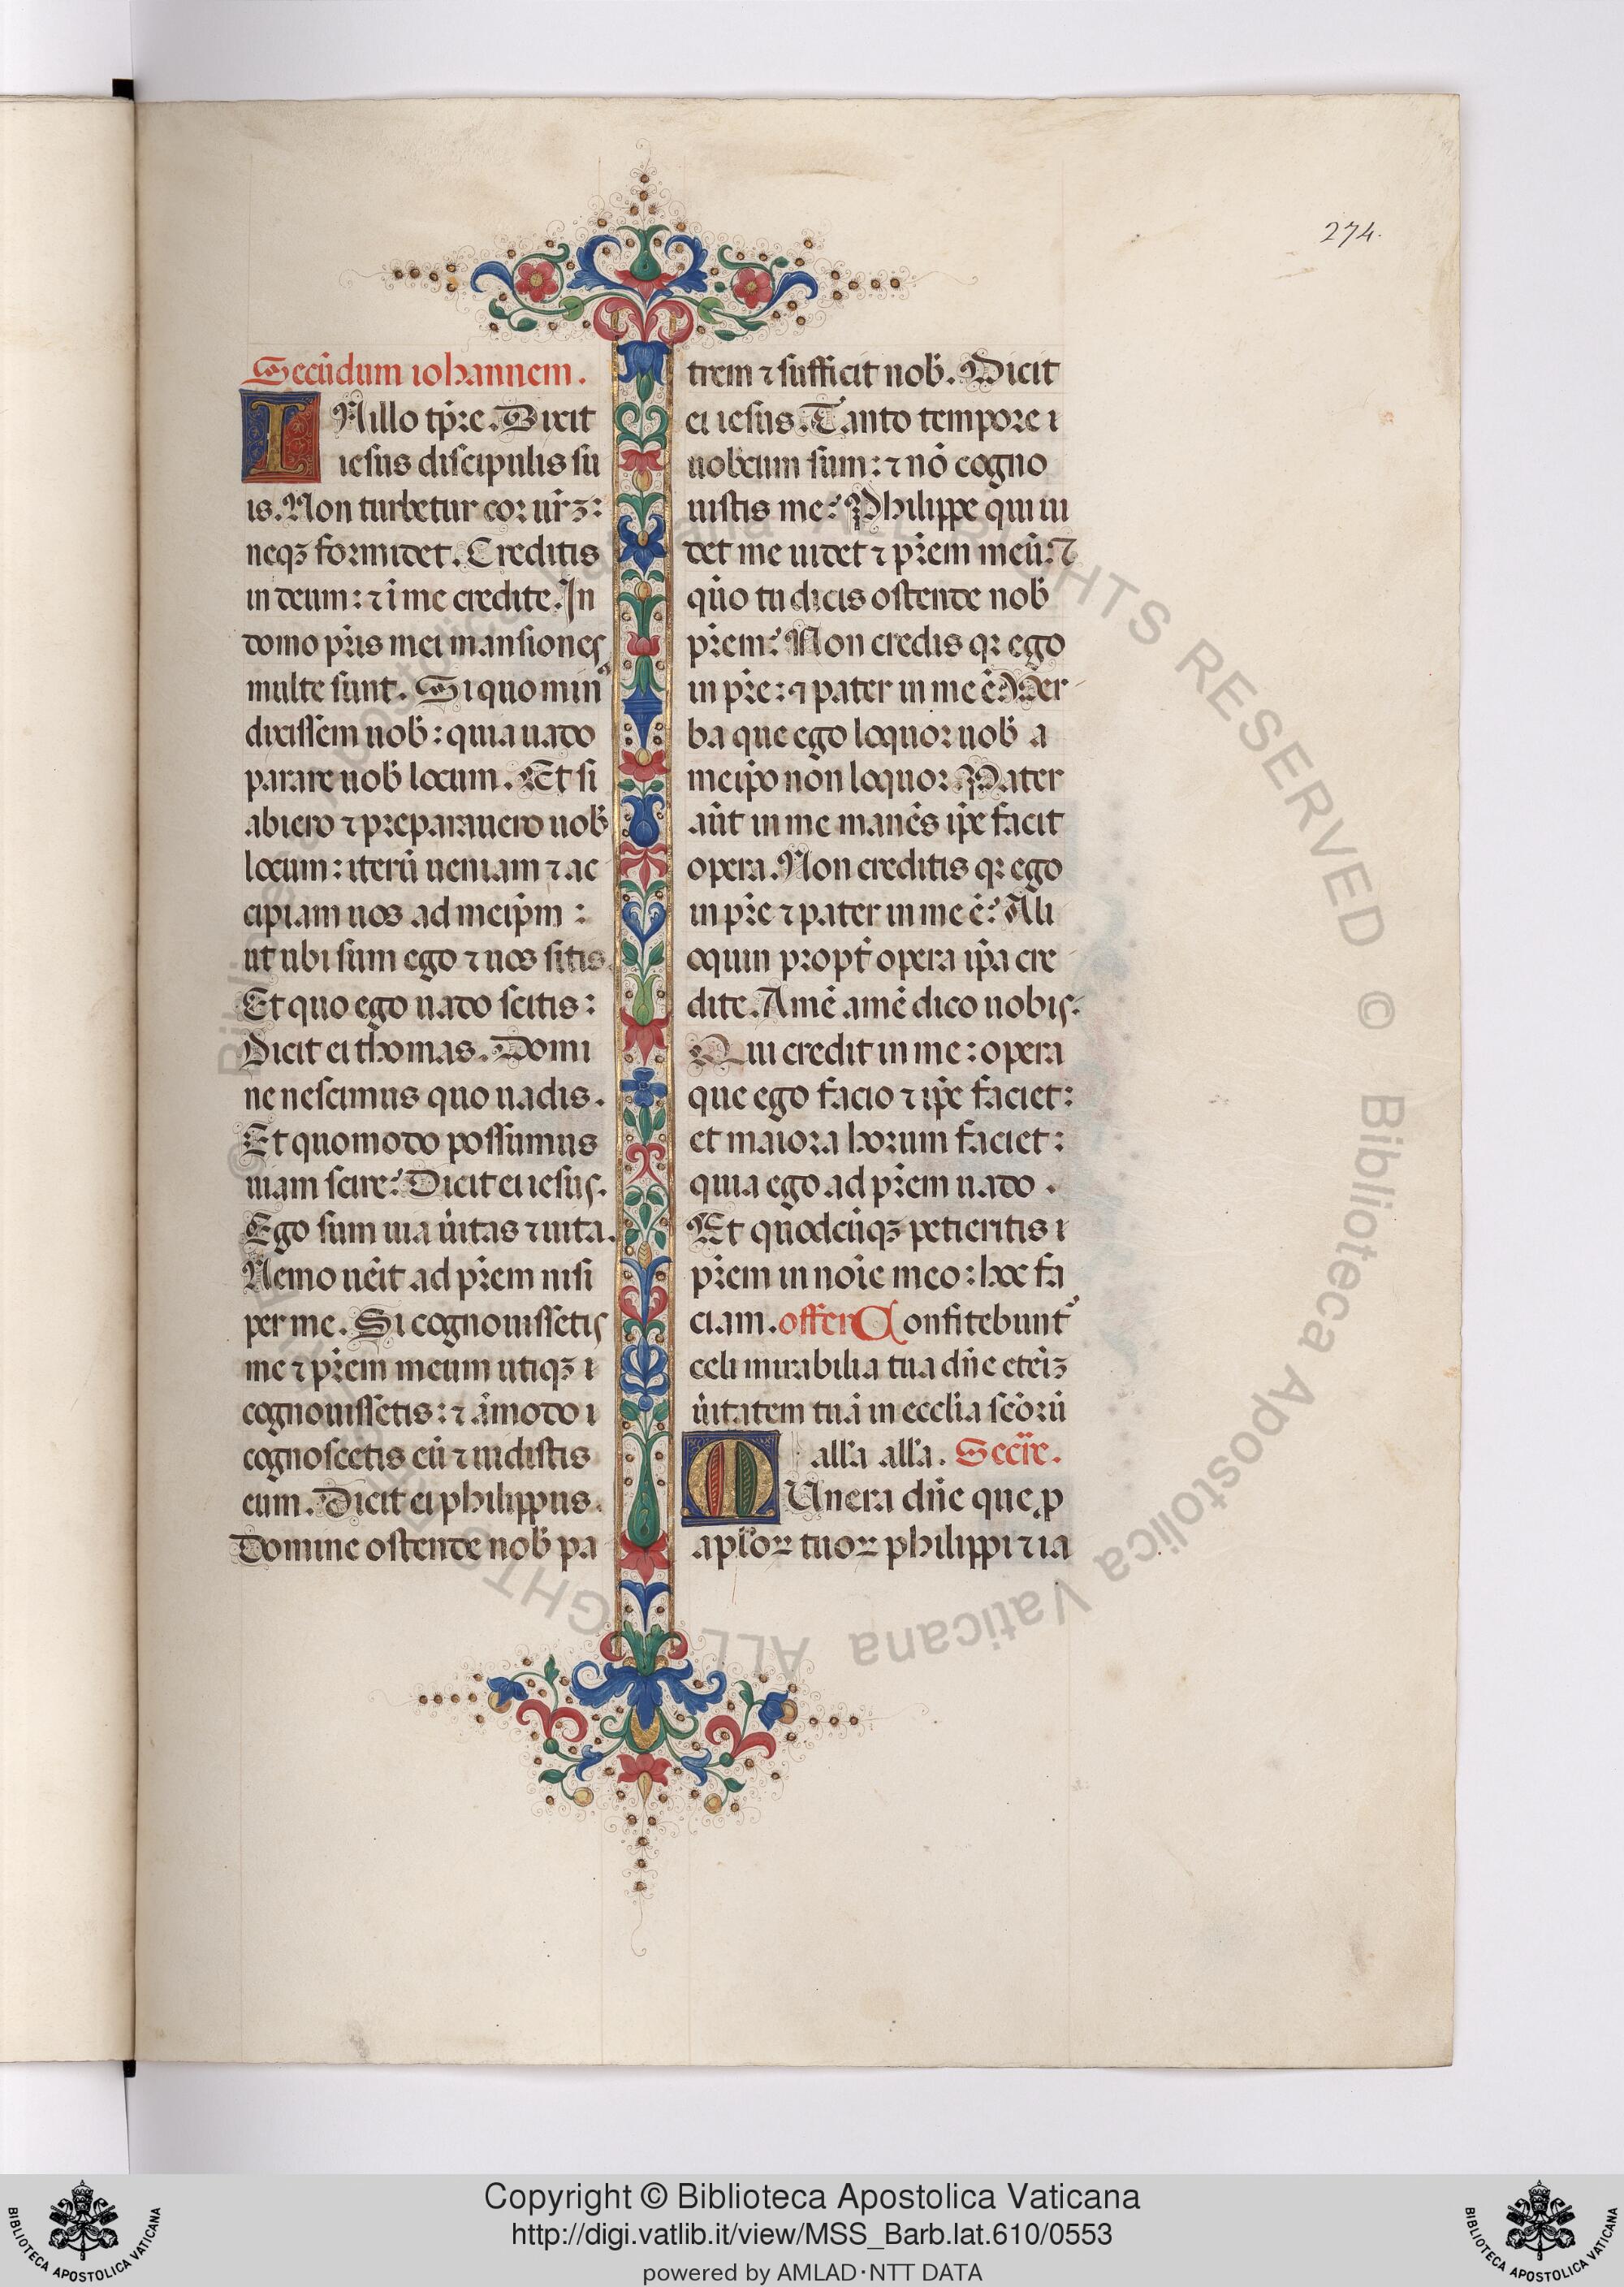 274.
Secūdum iohannem.
IN illo tp̄re. Dixit
iesus discipulis su
is. Non turbetur cor ur̄ꝫ:
neqꝫ formidet. Creditis
in deum: ⁊ ī me credite. In
domo pr̄is mei mansiones
multe sunt. Si quo minꝰ
dixissem uob̄: quia uado
parare uob̄ locum. Et si
abiero ⁊ preparauero uob̄
locum: iterū ueniam ⁊ ac
cipiam uos ad meip̄m:
ut ubi sum ego ⁊ uos sitis.
Et quo ego uado scitis:
Dicit ei thomas. Domi
ne nescimus quo uadis.
Et quomodo possumus
uiam scire? Dicit ei iesus.
Ego sum uia u̇itas ⁊ uita.
Nemo uēit ad pr̄em nisi
per me. Si cognouissetis
me ⁊ pr̄em meum utiqꝫ
cognouissetis: ⁊ āmodo
cognoscetis eū ⁊ uidistis
eum. Dicit ei philippus.
Domine ostende nob̄ pa
trem ⁊ sufficit nob̄. Dicit
ei iesus. Tanto tempore
uobcum sum: ⁊ nō cogno
uistis me? Philippe qui ui
det me uidet ⁊ pr̄em meū: ⁊
quo tu dicis ostende nob̄
pr̄em? Non credis qꝛ ego
in pr̄e: ⁊ pater in me ē? Ver
ba que ego loquor uob̄ a
meip̄o non loquor. Pater
aūt in me manēs ip̄e facit
opera. Non creditis qꝛ ego
in pr̄e ⁊ pater in me ē? Ali
oquin propt̄ opera ip̄a cre
dite. Amē amē dico uobis.
Qui credit in me: opera
que ego facio ⁊ ip̄e faciet:
et maiora horum faciet:
quia ego ad pr̄em uado.
Et quodcūqꝫ petieritis
pr̄em in noīe meo: hoc fa
ciam. offer̄ Confitebunt᷑
celi mirabilia tua dn̄e etēiꝫ
u̇itatem tuā in ecclīa scōꝝ
all̄a all̄a. Secr̄e.
MUnera dn̄e que p̱
apl̄oꝝ tuoꝝ philippi ⁊ ia
© Biblioteca Apostolica Vaticana ALL RIGHTS RESERVED © Biblioteca Apostolica Vaticana ALL RIGHTS
Copyright © Biblioteca Apostolica Vaticana
http://digi.vatlib.it/view/MSS_Barb.lat.610/0553
powered by AMLAD·NTT DATA
BIBLIOTECA APOSTOLICA VATICANA
BIBLIOTECA APOSTOLICA VATICANA